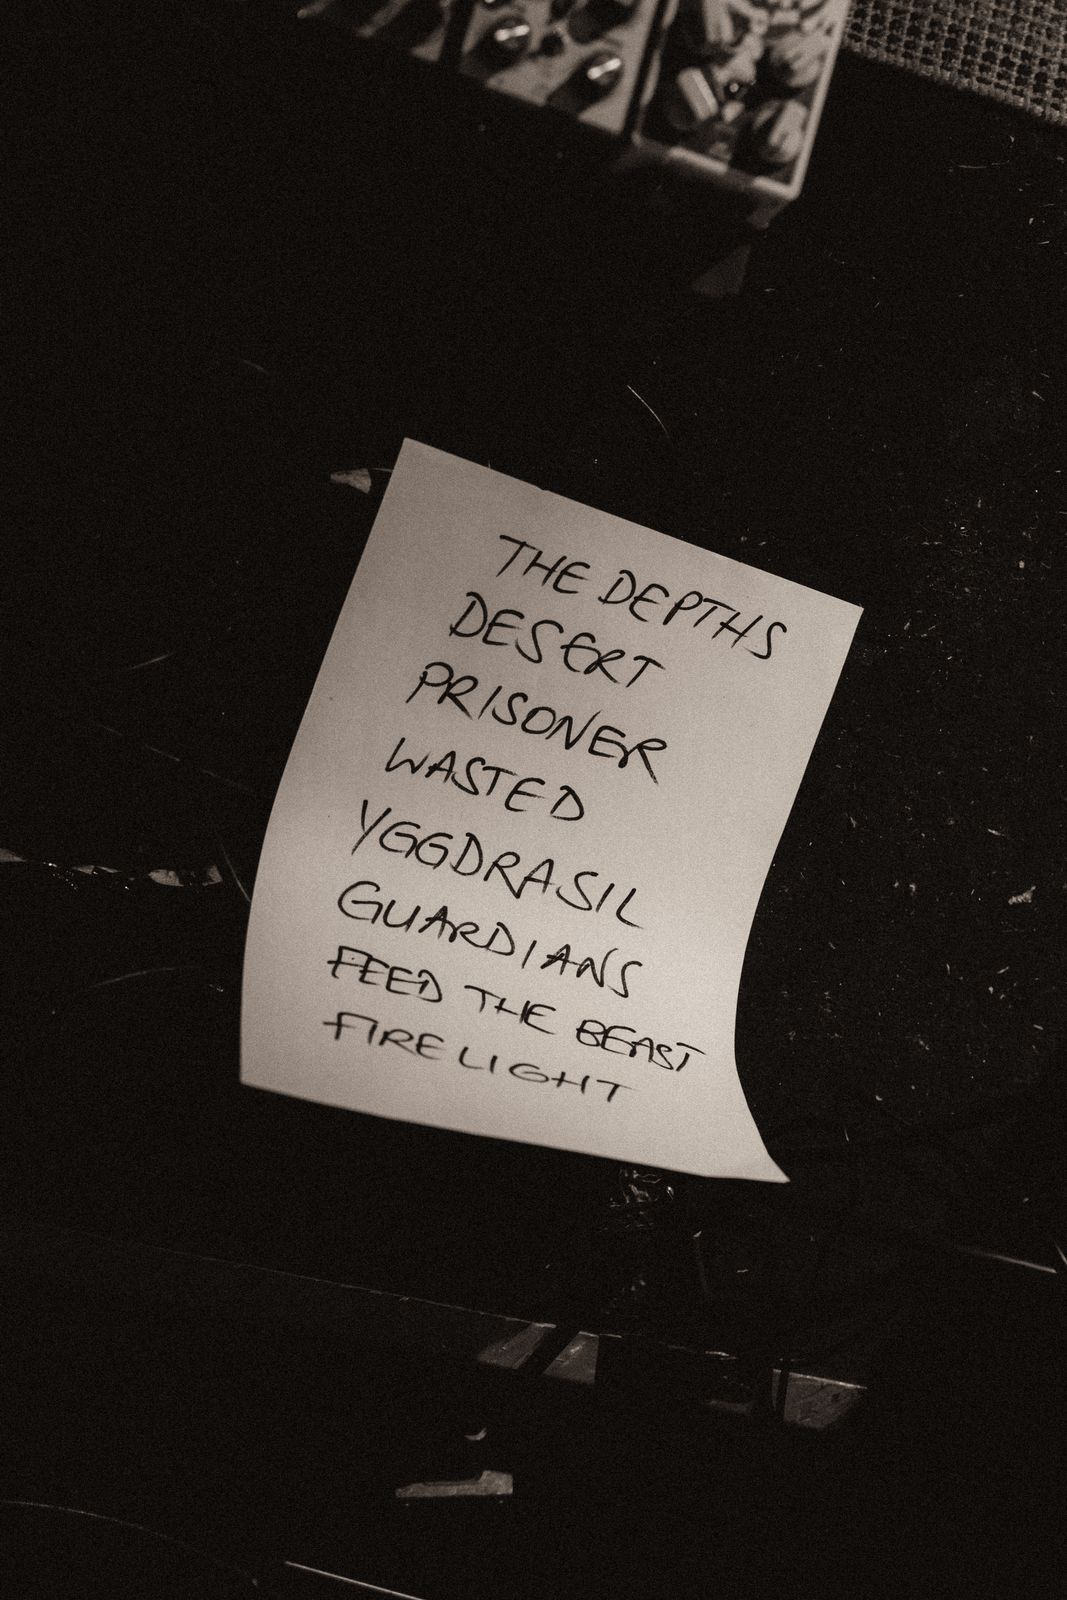 THE DEPTHS
DESERT
PRISONER
WASTED
YGGDRASIL
GUARDIANS
FEED THE BEAST
FIRELIGHT